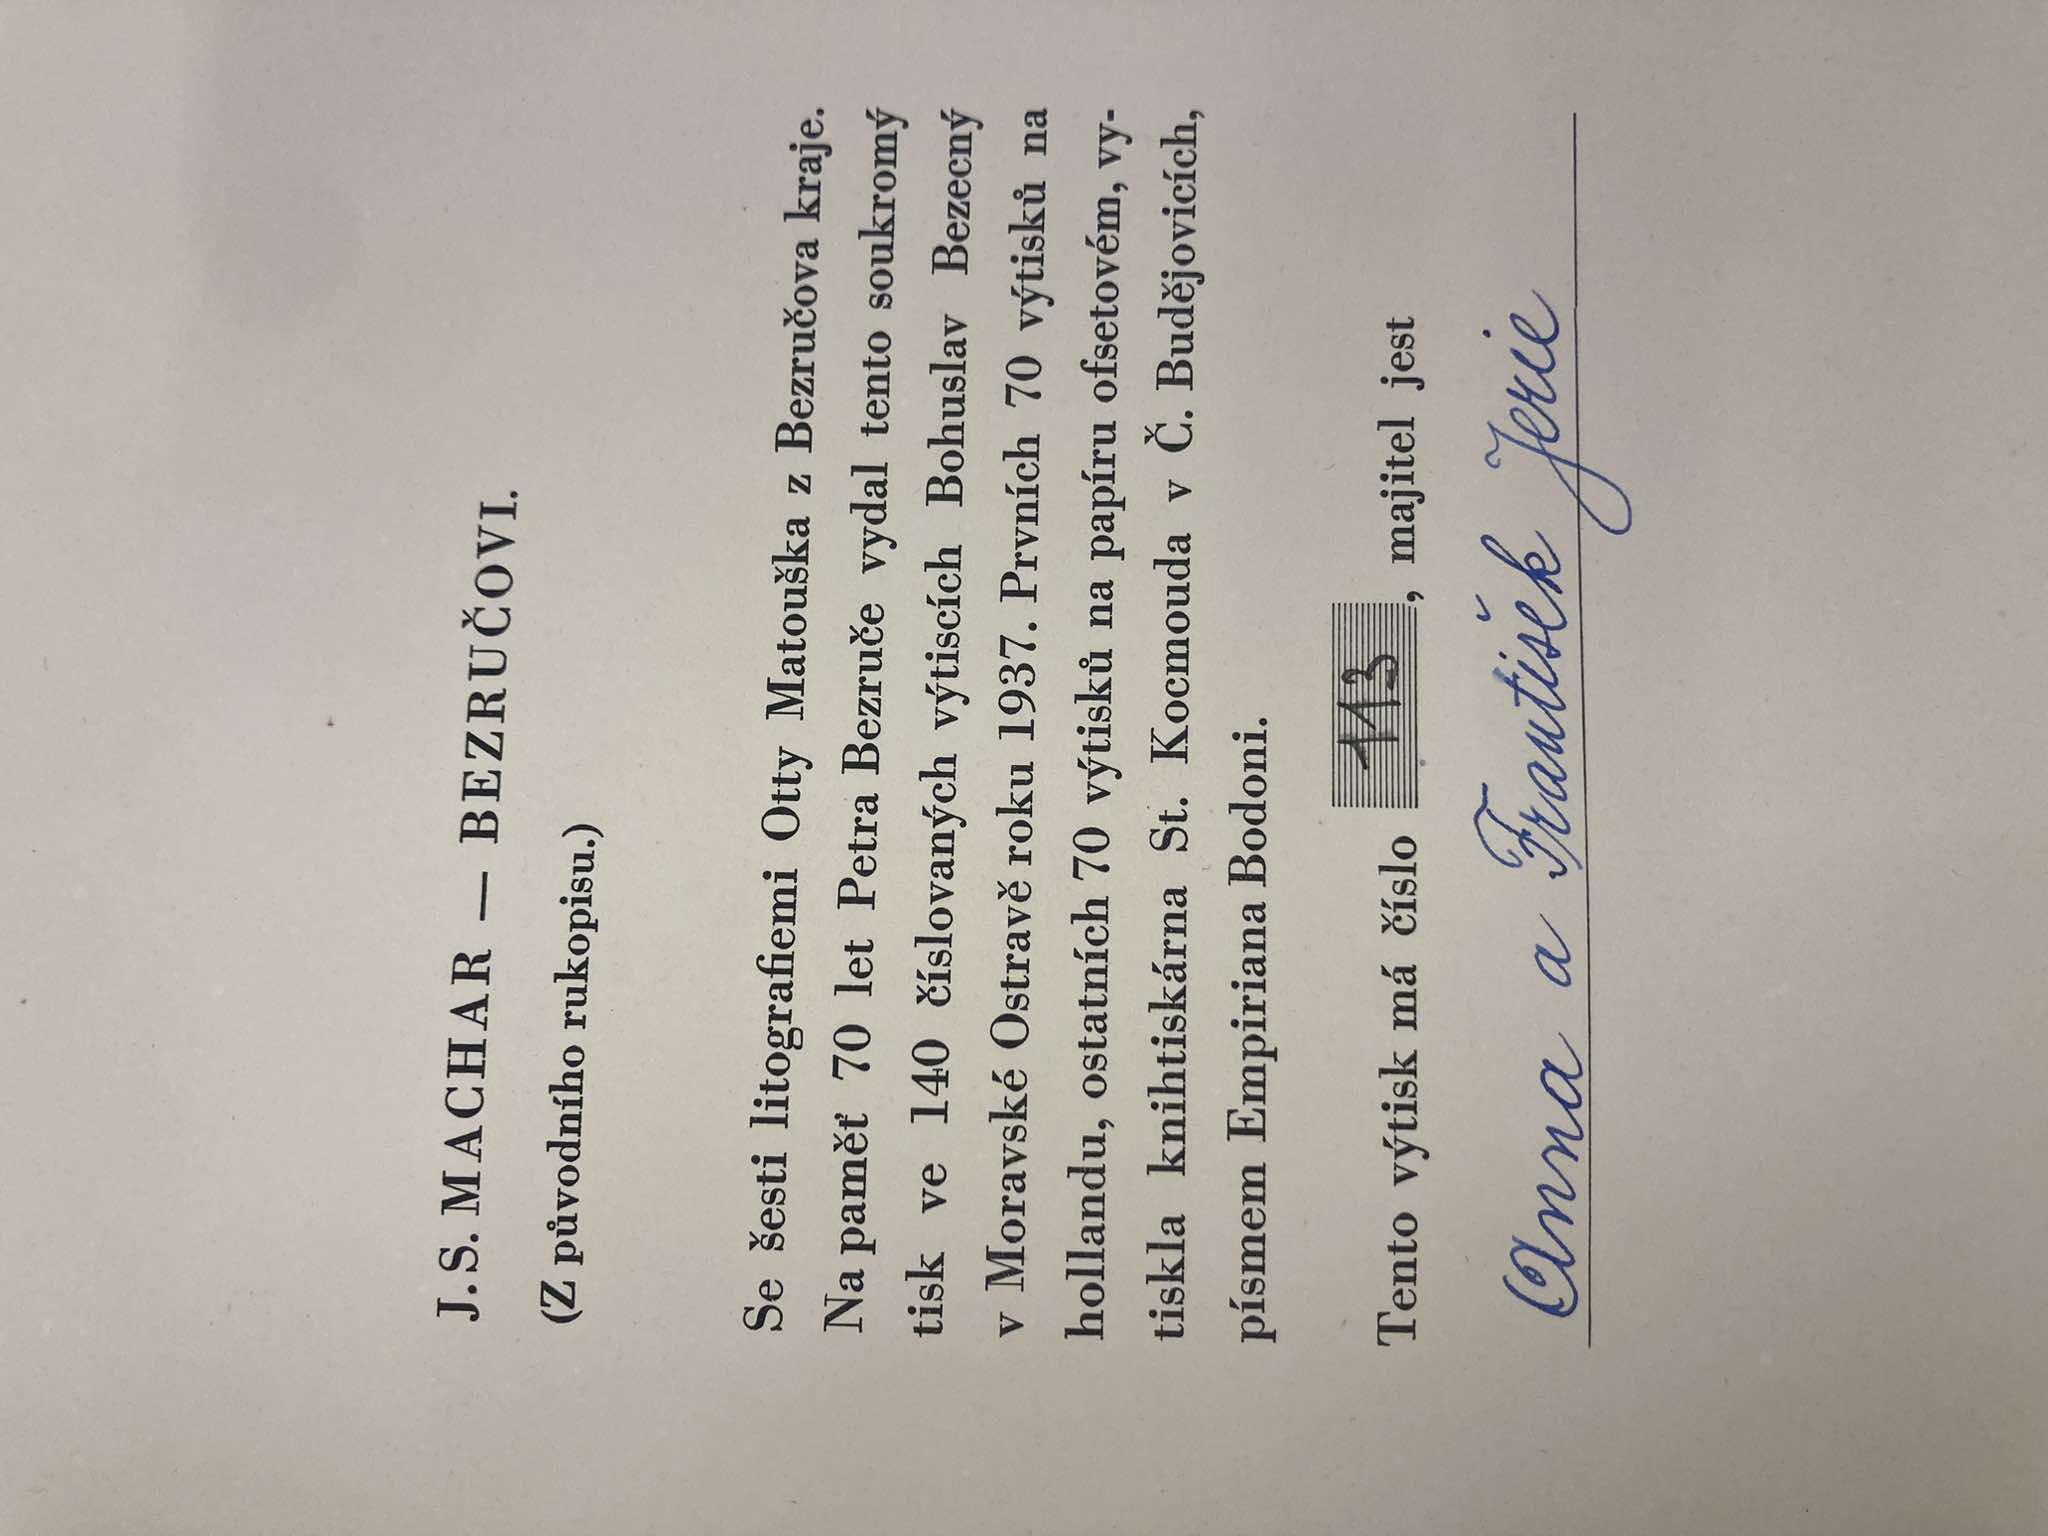 J. S. MACHAR — BEZRUČOVI.
(Z původního rukopisu.)
Se šesti litografiemi Otty Matouška z Bezručova kraje.
Na paměť 70 let Petra Bezruče vydal tento soukromý
tisk ve 140 číslovaných výtiscích Bohuslav Bezecný
v Moravské Ostravě roku 1937. Prvních 70 výtisků na
hollandu, ostatních 70 výtisků na papíru ofsetovém, vy-
tiskla knihtiskárna St. Kocmouda v Č. Budějovicích,
písmem Empiriana Bodoni.
Tento výtisk má číslo 113, majitel jest
Anna a František Jerie